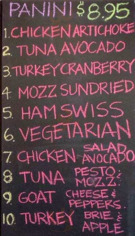 PANINI $8.95
1. CHICKEN ARTICHOKE
2. TUNA AVOCADO
3. TURKEY CRANBERRY
4. MOZZ SUNDRIED
5. HAM SWISS
6. VEGETARIAN
7 CHICKEN SALAD AVOCADO
8 TUNA PESTO & MOZZ.
9 GOAT CHEESE & PEPPERS.
10. TURKEY BRIE & APPLE